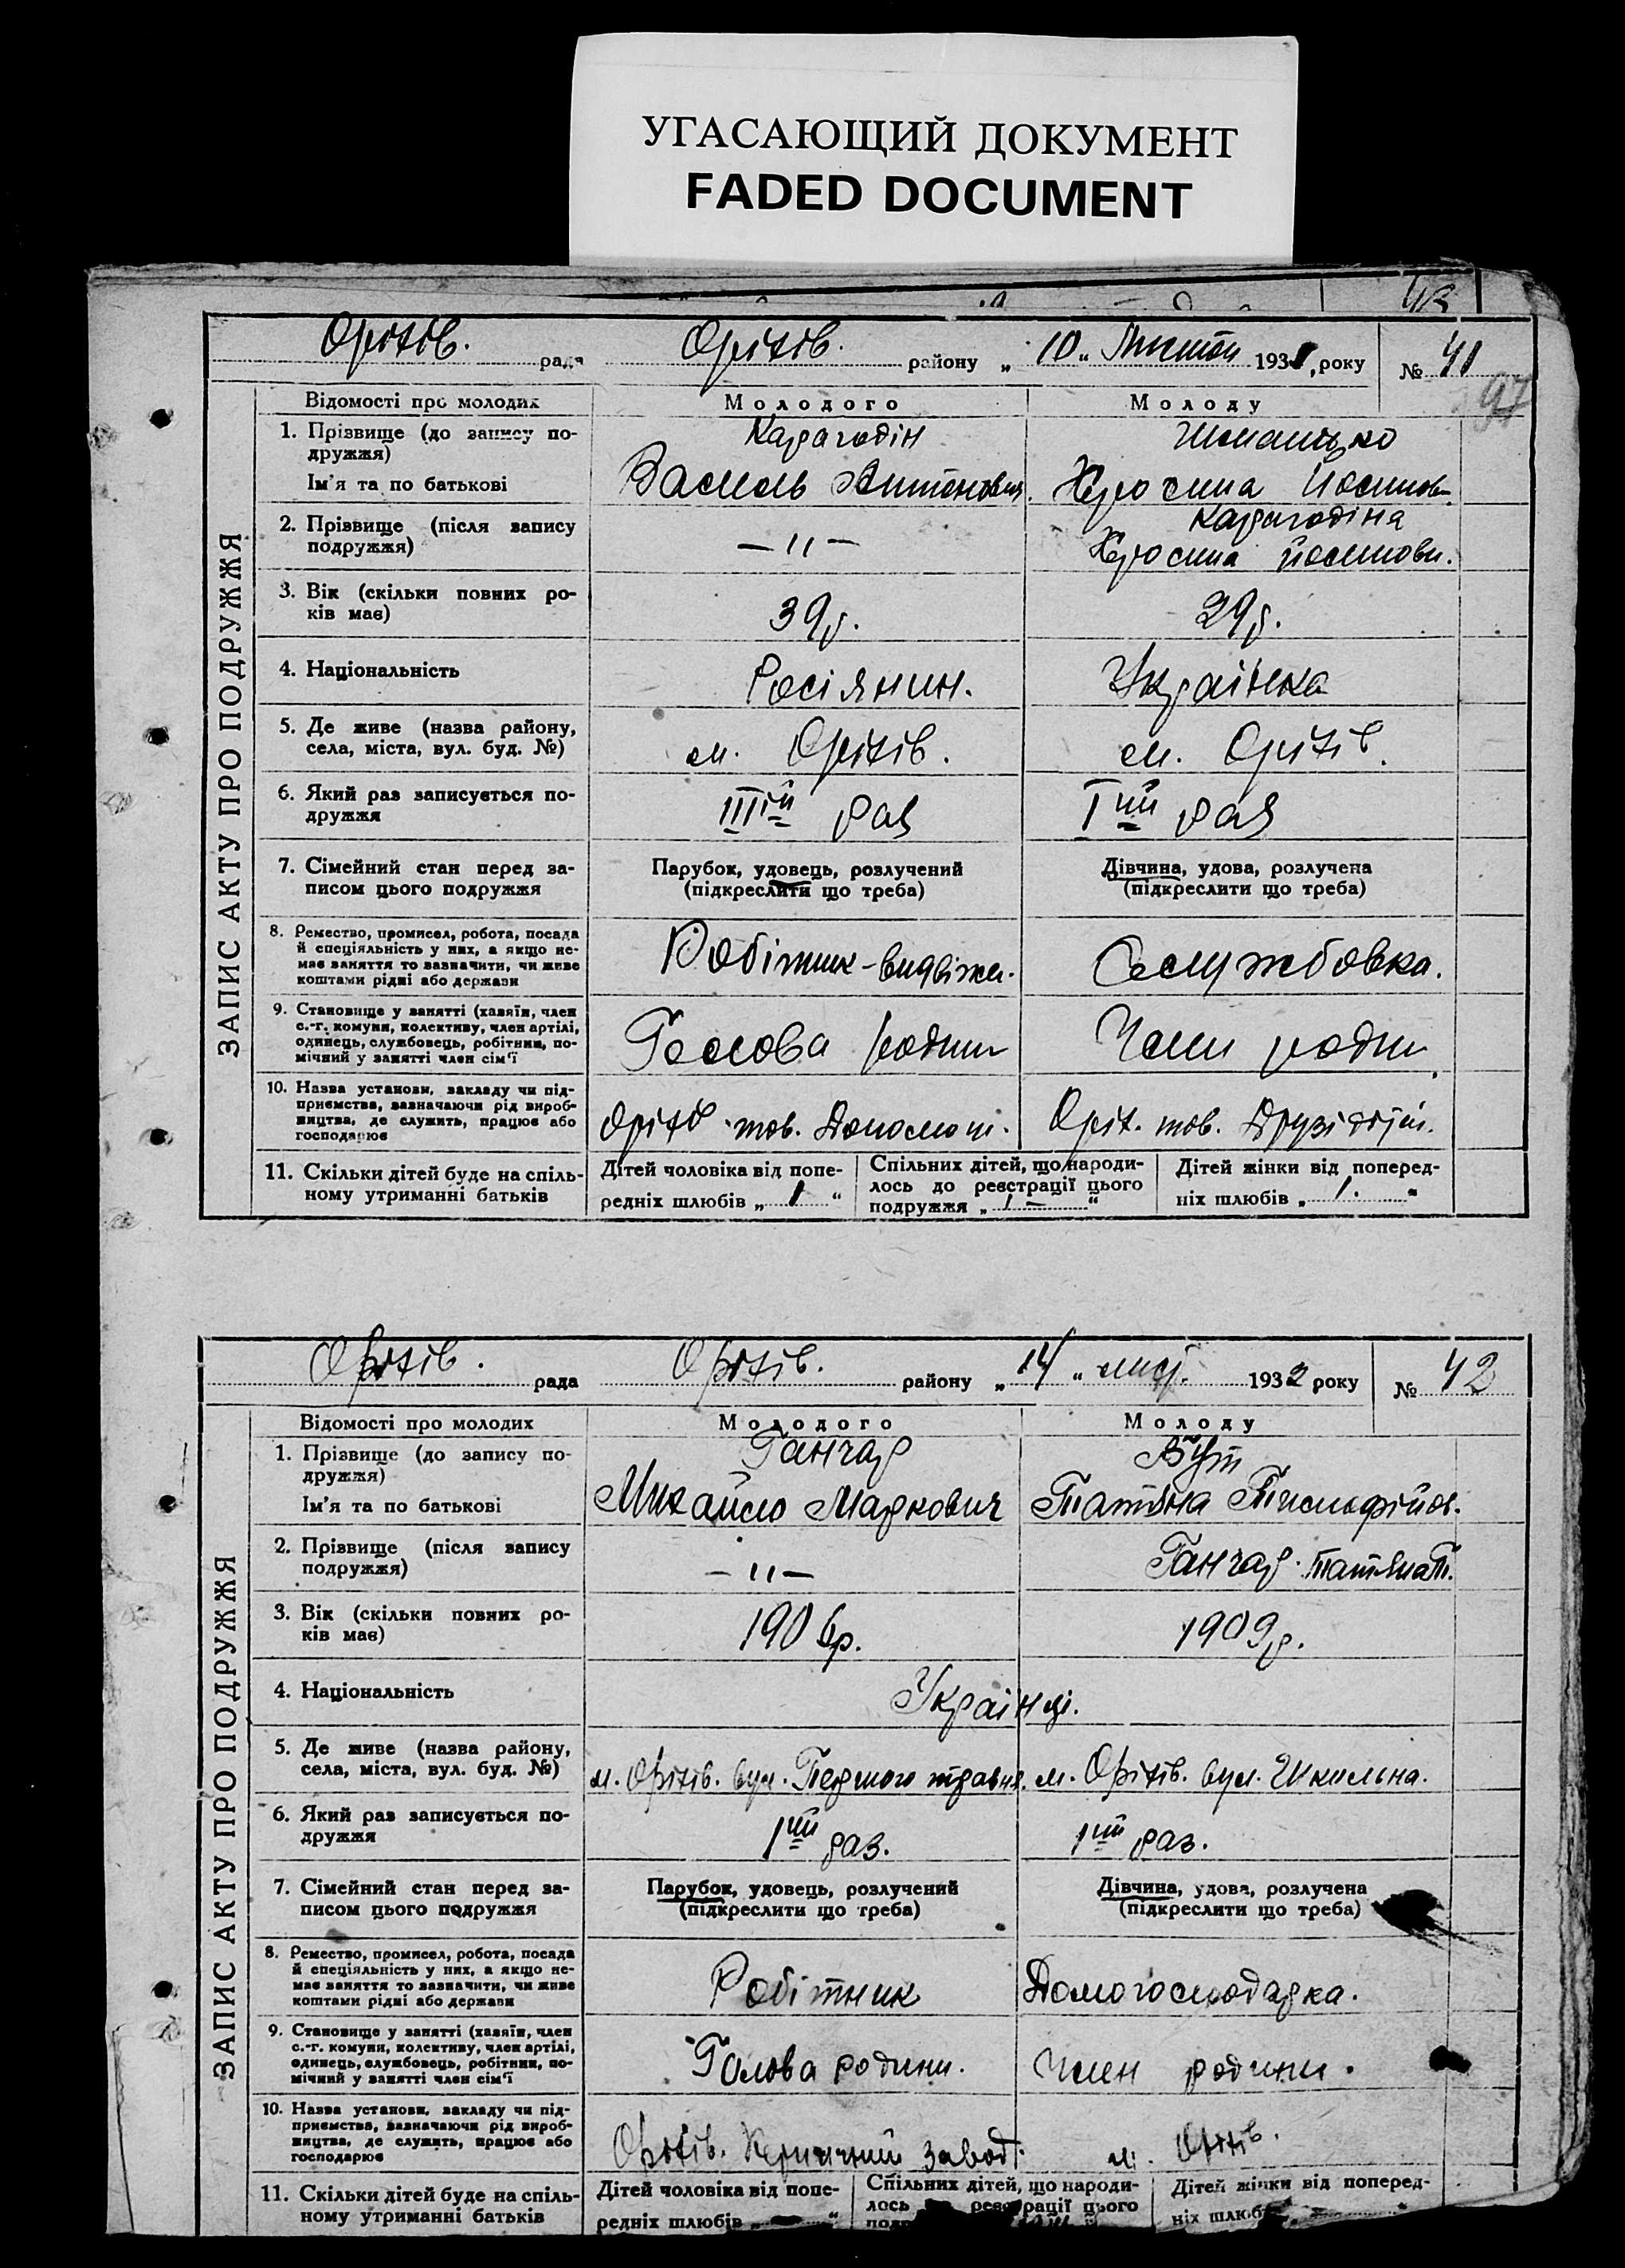 УГАСАЮЩИЙ ДОКУМЕНТ
FADED DOCUMENT
43
Оріхів. рада Оріхів. району „10„ Листоп 193 року № 41
97
ЗАПИС АКТУ ПРО ПОДРУЖЖЯ
Відомості про молодих Молодого Молоду
1. Прізвище (до запису по-
дружжя)
Карагодін
Ім'я та по батькові
Василь Антонович. Йосипов
2. Прізвище (після запису
подружжя)
— 〃 —
Карагодіна
Йосиповн.
3. Вік (скільки повних ро-
ків має)
39р. 29р.
4. Національність
Росіянин. Українка
5. Де живе (назва району,
села, міста, вул. буд. №)
м. Оріхів. м. Оріхів.
6. Який раз записується по-
дружжя
IIIій раз Iший раз
7. Сімейний стан перед за-
писом цього подружжя
Парубок, удовець, розлучений
(підкреслити що треба)
Дівчина, удова, розлучена
(підкреслити що треба)
8. Ремество, промисел, робота, посада
й спеціяльність у них, а якщо не-
має заняття то зазначити, чи живе
коштами рідні або держави
Робітник-видвіжен. Службовка.
9. Становище у занятті (хазяїн, член
с.-г. комуни, колективу, член артілі,
одинець, службовець, робітник, по-
мічний у занятті член сім'ї
Голова родини Член родини.
10. Назва установи, закладу чи під-
приємства, зазначаючи рід вироб-
ництва, де служить, працює або
господарює
Оріхів тов. Допомоги. Оріх. тов. Друзі дітей.
11. Скільки дітей буде на спіль-
ному утриманні батьків
Дітей чоловіка від попе-
редніх шлюбів „ 1 “
Спільних дітей, що народи-
лось до реєстрації цього
подружжя „ 1 — “
Дітей жінки від поперед-
ніх шлюбів „ 1. “
Оріхів. рада Оріхів. району „14„ лист. 1932 року № 42
ЗАПИС АКТУ ПРО ПОДРУЖЖЯ
Відомості про молодих Молодого Молоду
1. Прізвище (до запису по-
дружжя)
Ганчар Бут
Ім'я та по батькові
Михайло Маркович Татьяна
2. Прізвище (після запису
подружжя)
— 〃 — Ганчар Татьяна П.
3. Вік (скільки повних ро-
ків має)
1906р. 1909р.
4. Національність
Українці.
5. Де живе (назва району,
села, міста, вул. буд. №)
м. Оріхів. вул. Першого травня. м. Оріхів. вул. Шкільна.
6. Який раз записується по-
дружжя
1ший раз. 1ший раз.
7. Сімейний стан перед за-
писом цього подружжя
Парубок, удовець, розлучений
(підкреслити що треба)
Дівчина, удова, розлучена
(підкреслити що треба)
8. Ремество, промисел, робота, посада
й спеціяльність у них, а якщо не-
має заняття то зазначити, чи живе
коштами рідні або держави
Робітник Домогосподарка.
9. Становище у занятті (хазяїн, член
с.-г. комуни, колективу, член артілі,
одинець, службовець, робітник, по-
мічний у занятті член сім'ї
Голова родини. Член родини.
10. Назва установи, закладу чи під-
приємства, зазначаючи рід вироб-
ництва, де служить, працює або
господарює
Оріхів. завод. м. Оріхів.
11. Скільки дітей буде на спіль-
ному утриманні батьків
Дітей чоловіка від попе-
редніх шлюбів „ — “
Спільних дітей, що народи-
лось реєстрації цього
Дітей жінки від поперед-
ніх